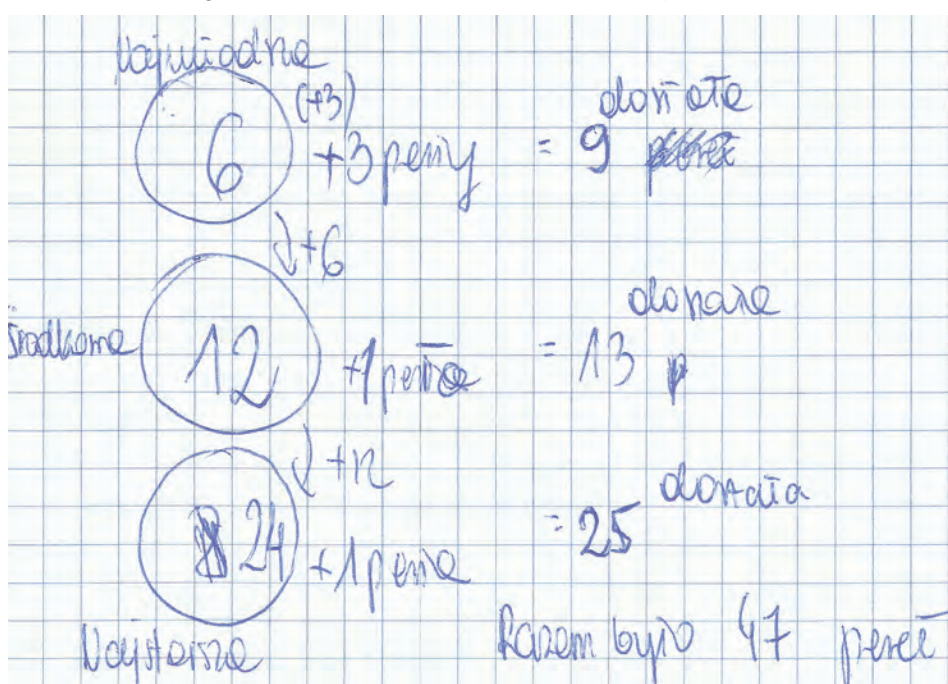 Najmłodsza
(+3)
6 +3 perły = 9 dostała
↓+6
środkowa 12 +1 perła = 13 dostała
↓+12
24 +1 perła = 25 dostała
Najstarsza
Razem było 47 pereł